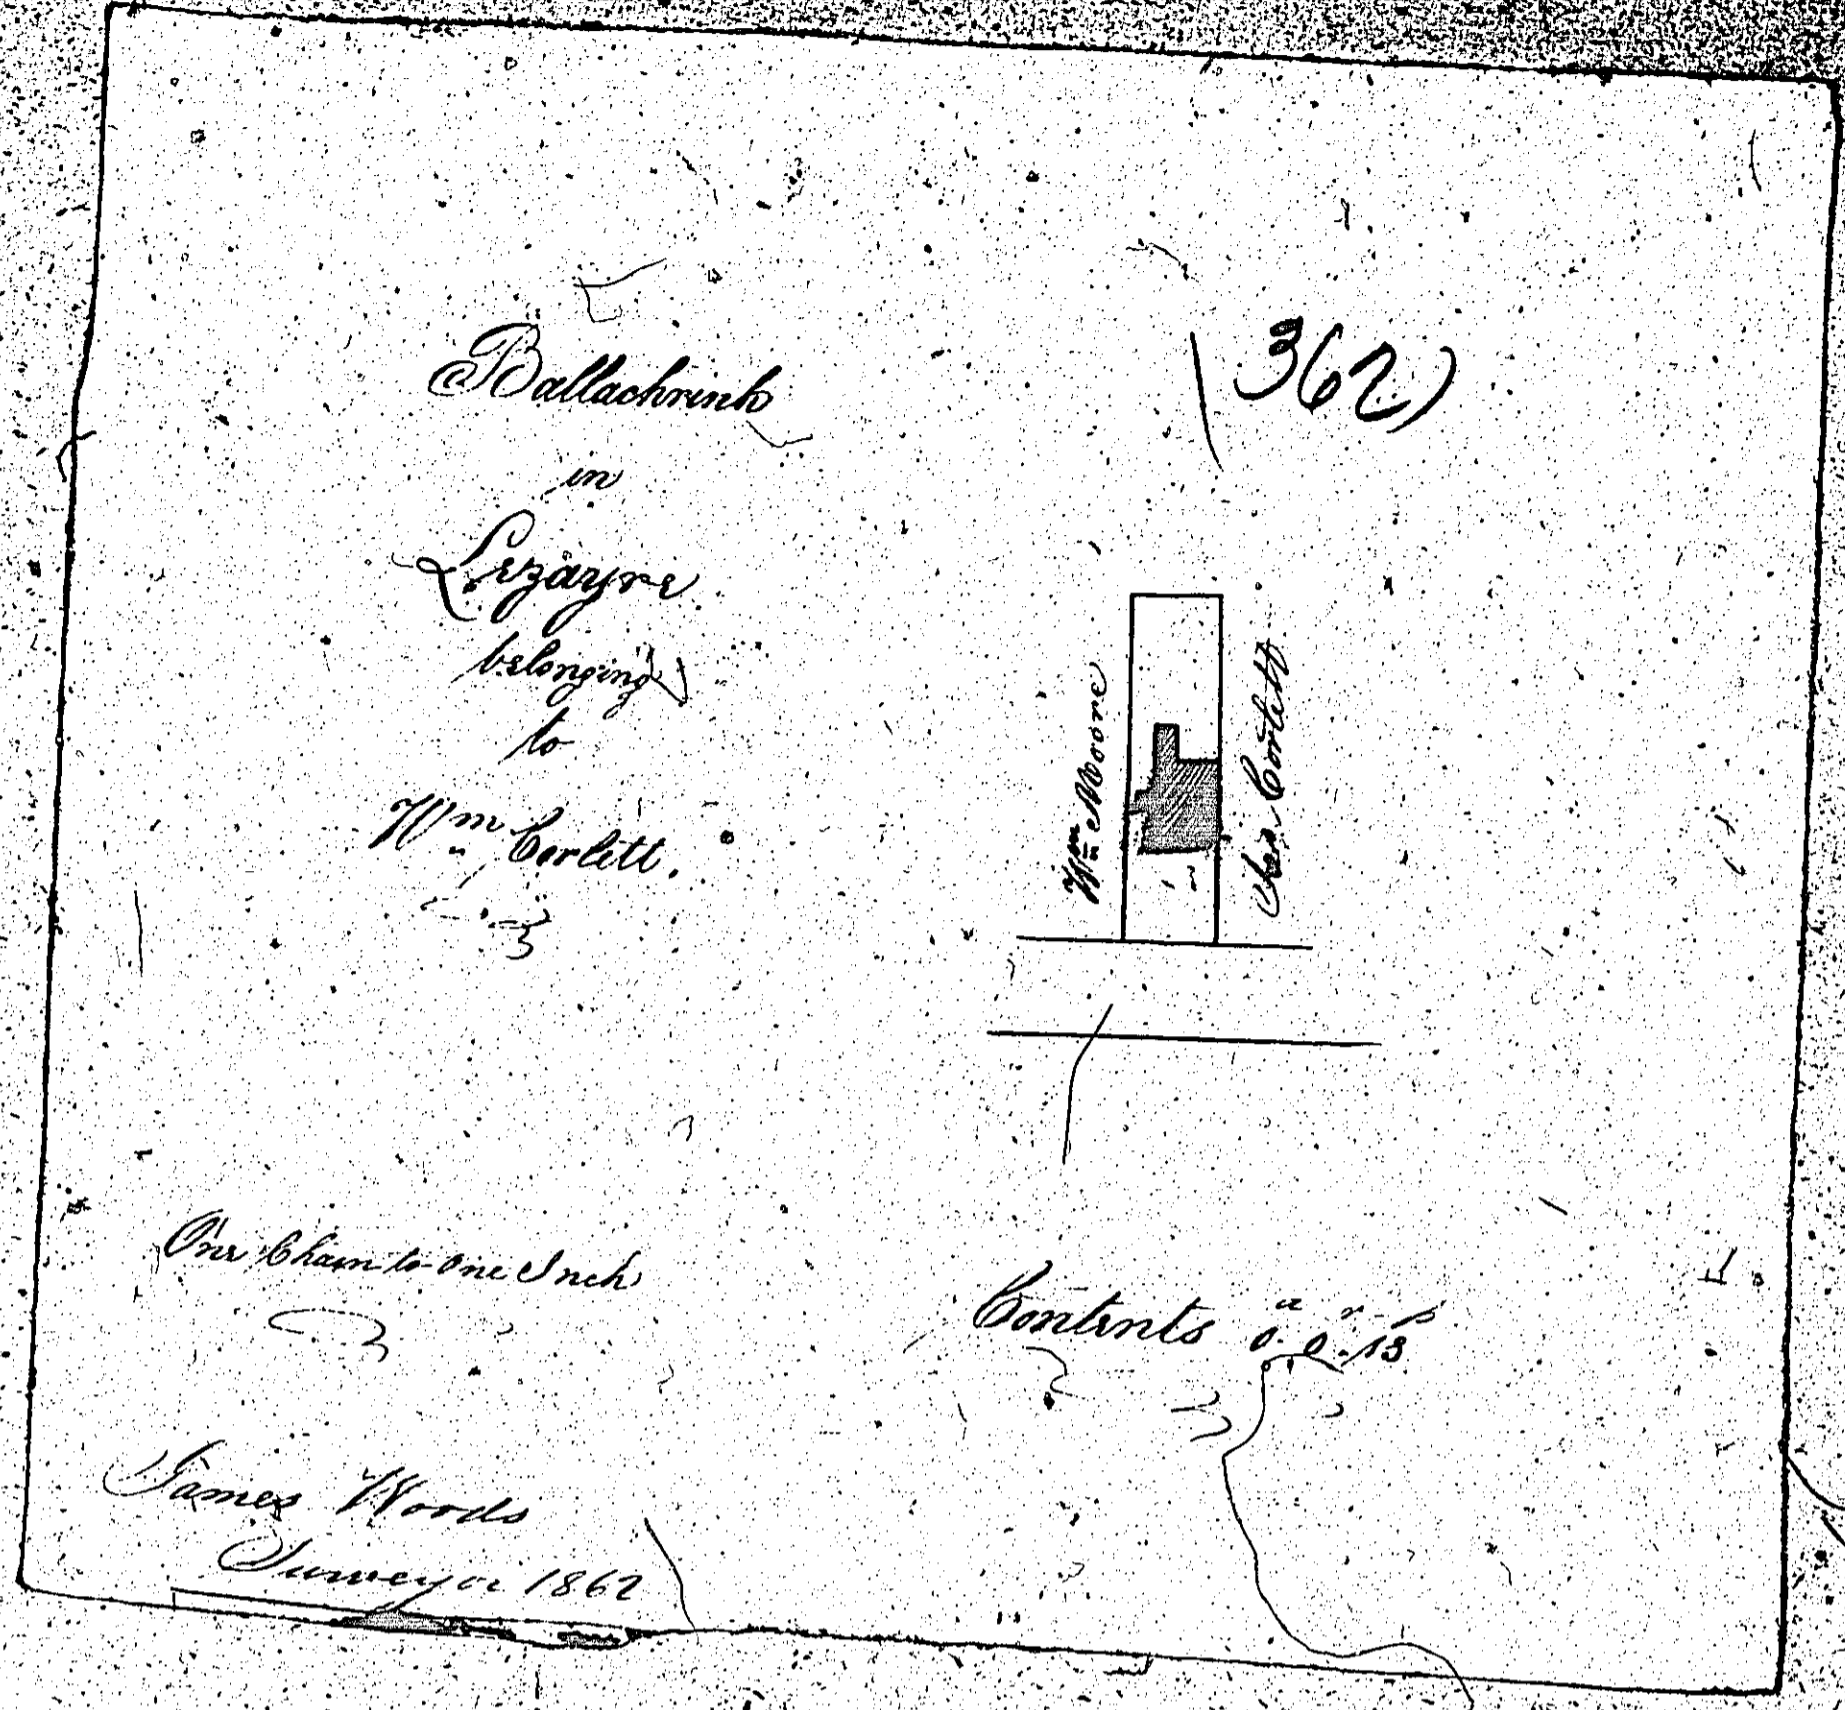 Ballachrink
in
Lezayre
belonging
to
Wm Corlett.
362
Wm Moore
Corlett
One Chain to One Inch
Contents a r p
0. 0. 13
James Woods
Surveyor 1862